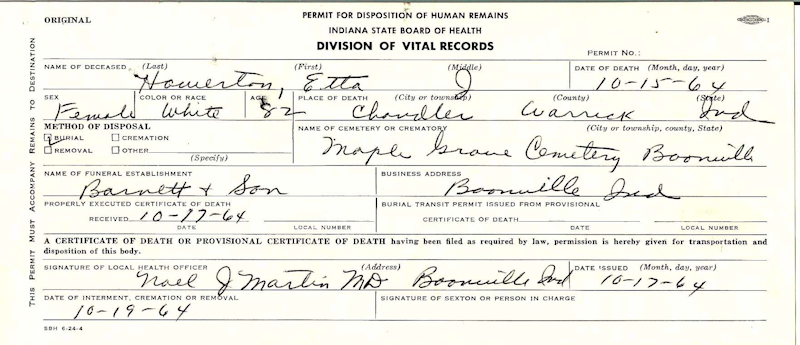 ORIGINAL
PERMIT FOR DISPOSITION OF HUMAN REMAINS
INDIANA STATE BOARD OF HEALTH
DIVISION OF VITAL RECORDS
PERMIT NO.:
THIS PERMIT MUST ACCOMPANY REMAINS TO DESTINATION
NAME OF DECEASED (Last) (First) (Middle) DATE OF DEATH (Month, day, year)
Howerton, Etta J 10-15-64
SEX COLOR OR RACE AGE PLACE OF DEATH (City or township) (County) (State)
Female White 82 Chandler Warrick Ind
METHOD OF DISPOSAL NAME OF CEMETERY OR CREMATORY (City or township, county, State)
BURIAL CREMATION
REMOVAL OTHER
(Specify)
Maple Grove Cemetery Boonville
NAME OF FUNERAL ESTABLISHMENT BUSINESS ADDRESS
Barnett & Son Boonville Ind
PROPERLY EXECUTED CERTIFICATE OF DEATH BURIAL TRANSIT PERMIT ISSUED FROM PROVISIONAL
RECEIVED 10-17-64 CERTIFICATE OF DEATH
DATE LOCAL NUMBER DATE LOCAL NUMBER
A CERTIFICATE OF DEATH OR PROVISIONAL CERTIFICATE OF DEATH having been filed as required by law, permission is hereby given for transportation and
disposition of this body.
SIGNATURE OF LOCAL HEALTH OFFICER (Address) DATE ISSUED (Month, day, year)
Noel J Martin MD Boonville Ind 10-17-64
DATE OF INTERMENT, CREMATION OR REMOVAL SIGNATURE OF SEXTON OR PERSON IN CHARGE
10-19-64
SBH 6-24-4